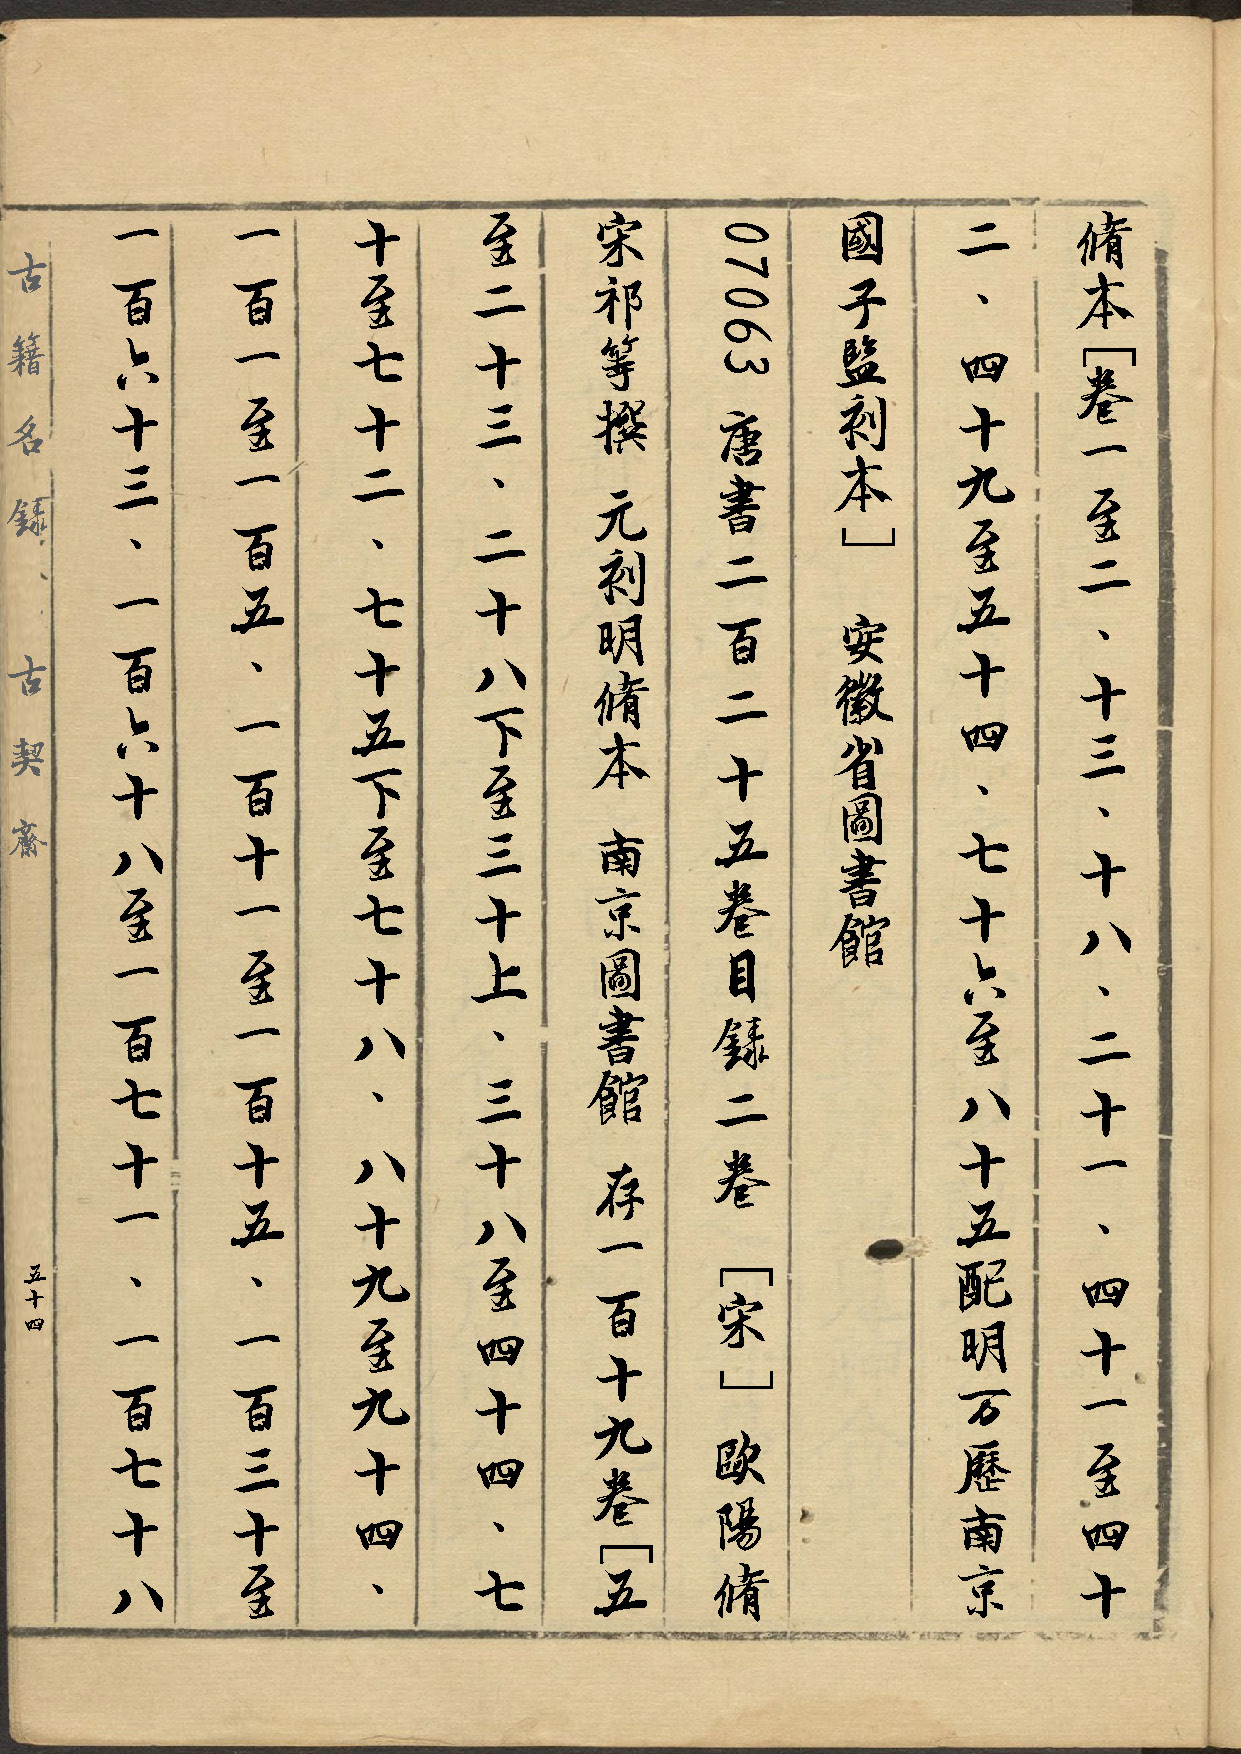 脩本[卷一至二、十三、十八、二十一、四十一至四十
二、四十九至五十四、七十六至八十五配明万歷南京
國子監刻本] 安徽省圖書館
07063 唐書二百二十五卷目録二卷 [宋] 歐陽脩
宋祁等撰 元刻明脩本 南京圖書館 存一百十九卷[五
至二十三、二十八下至三十上、三十八至四十四、七
十至七十二、七十五下至七十八、八十九至九十四、
一百一至一百五、一百十一至一百十五、一百三十至
一百六十三、一百六十八至一百七十一、一百七十八
古籍名録、、古契齋
五十四